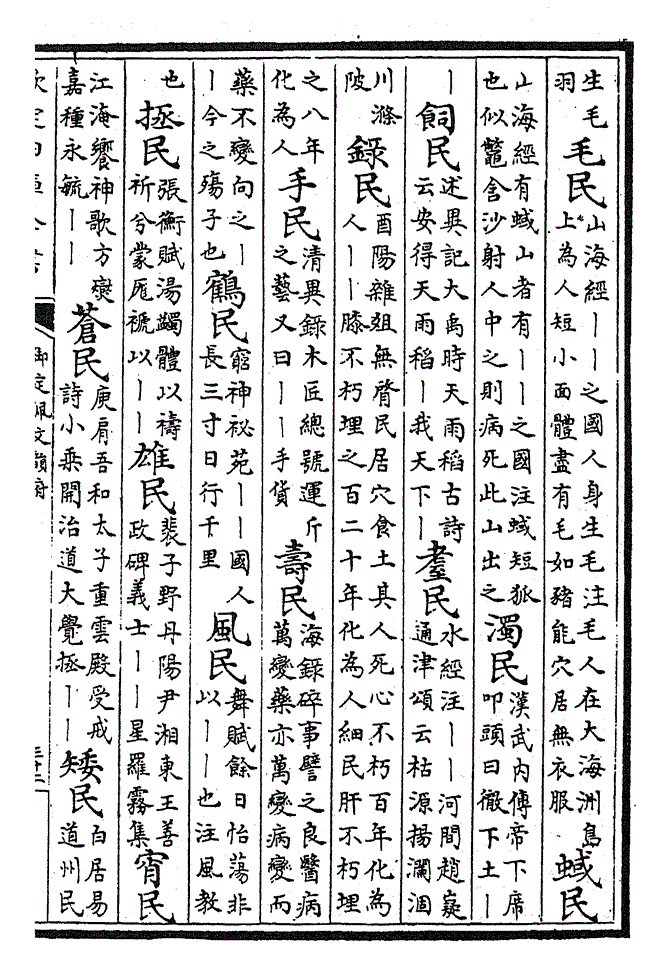 生毛羽 毛民 山海經丨丨之國人身生毛注毛人在大海洲島上為人短小面體盡有毛如豬能穴居無衣服 蜮民
山海經有蜮山者有丨丨之國注蜮短狐也似鼈含沙射人中之則病死此山出之 濁民 漢武內傳帝下席叩頭曰徹下土丨
丨 飼民 述異記大禹時天雨稻古詩云安得天雨稻丨我天下丨 耋民 水經注丨丨河間趙嶷通津頌云枯源揚瀾涸
川滌陂 錄民 酉陽雜俎無脊民居穴食土其人死心不朽百年化為人丨丨膝不朽埋之百二十年化為人細民肝不朽埋
之八年化為人 手民 清異錄木匠總號運斤之藝又曰丨丨手貨 壽民 海錄碎事譬之良醫病萬變藥亦萬變病變而
藥不變向之丨丨今之殤子也 鶴民 窮神祕苑丨丨國人長三寸日行千里 風民 舞賦餘日怡蕩非以丨丨也注風教
也 拯民 張衡賦湯蠲體以禱祈兮蒙厖禠以丨丨 雄民 裴子野丹陽尹湘東王善政碑義士丨丨星羅霧集 甯民
江淹饗神歌方燮嘉種永毓丨丨 蒼民 庾肩吾和太子重雲殿受戒詩小乘開治道大覺拯丨丨 矮民 白居易道州民
欽定四庫全書
御定佩文韻府